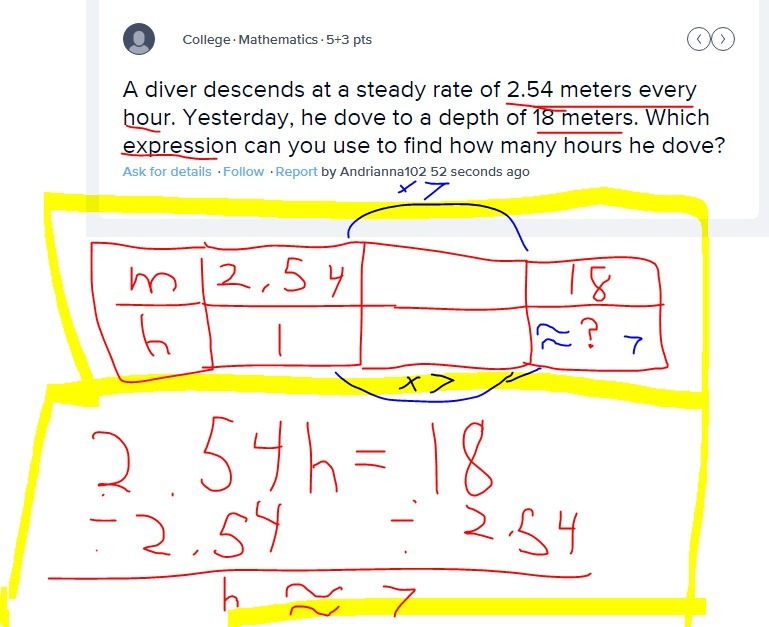 College · Mathematics · 5+3 pts
A diver descends at a steady rate of 2.54 meters every
hour. Yesterday, he dove to a depth of 18 meters. Which
expression can you use to find how many hours he dove?
Ask for details · Follow · Report by Andrianna102 52 seconds ago
x 7
m 2.54 18
h 1 ≈ ? 7
x 7
2.54h = 18
÷ 2.54 ÷ 2.54
h ≈ 7